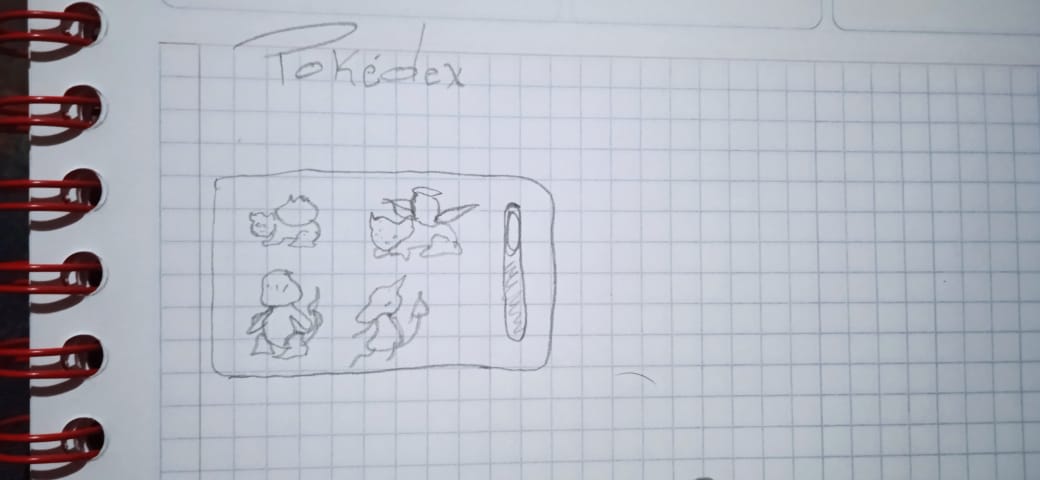 Pokédex